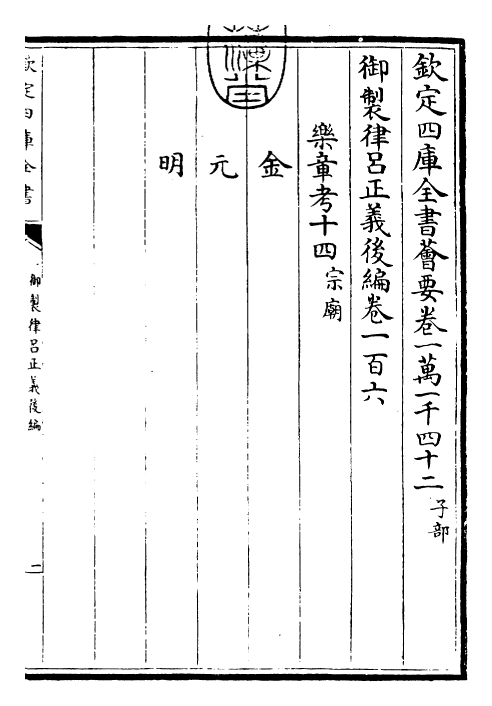 欽定四庫全書薈要卷一萬一千四十二 子部
御製律呂正義後編卷一百六
樂章考十四 宗廟
金
元
明
欽定四庫全書
御製律呂正義後編